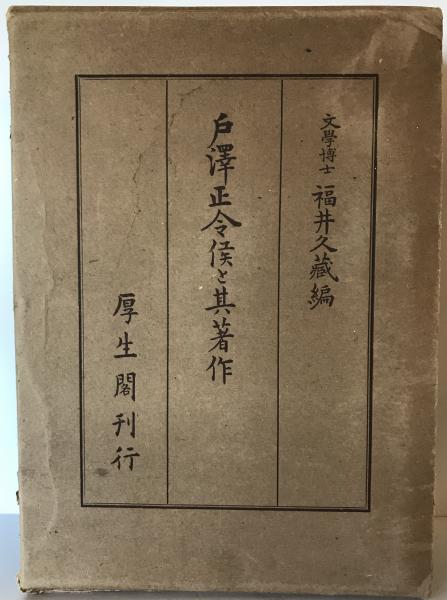 文學博士 福井久藏編
戸澤正令侯と其著作
厚生閣刊行